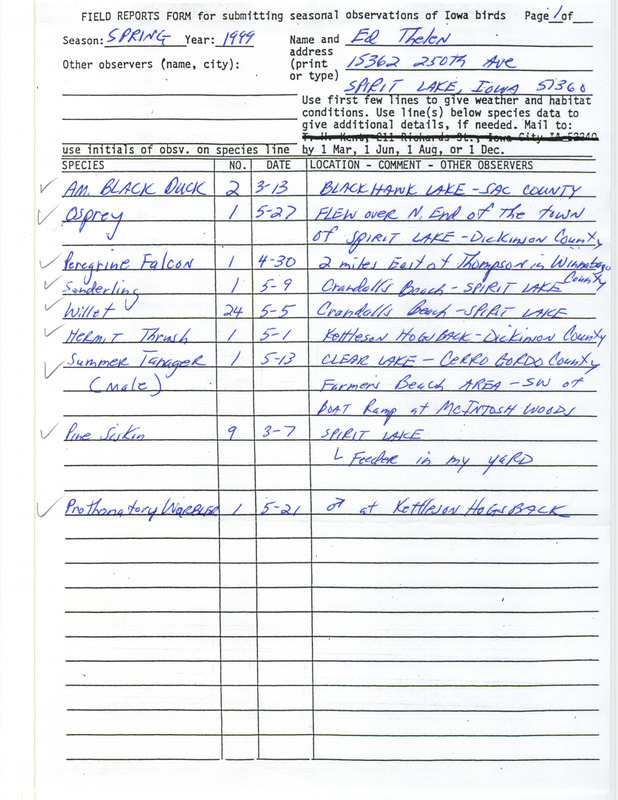 FIELD REPORTS FORM for submitting seasonal observations of Iowa birds Page 1 of
Season: SPRING Year: 1999 Name and Ed Thelen
address
Other observers (name, city): (print 15362 250th Ave
or type) SPIRIT LAKE, IOWA 51360
Use first few lines to give weather and habitat
conditions. Use line(s) below species data to
give additional details, if needed. Mail to:
T. H. Kent, 211 Richards St., Iowa City IA 52240
use initials of obsv. on species line by 1 Mar, 1 Jun, 1 Aug, or 1 Dec.
SPECIES NO. DATE LOCATION - COMMENT - OTHER OBSERVERS
✓ Am. BLACK DUCK 2 3-13 BLACK HAWK LAKE - SAC COUNTY
✓ Osprey 1 5-27 FLEW over N. End of the town
of SPIRIT LAKE - Dickinson County
✓ Peregrine Falcon 1 4-30 2 miles East of Thompson in Winnebago County
✓ Sanderling 1 5-9 Crandalls Beach - SPIRIT LAKE
✓ Willet 24 5-5 Crandalls Beach - SPIRIT LAKE
✓ Hermit Thrush 1 5-1 Kettleson HOGSBACK - Dickinson County
✓ Summer Tanager 1 5-13 CLEAR LAKE - CERRO GORDO County
(Male) Farmers Beach AREA - SW of
BOAT Ramp at McINTOSH WOODS
✓ Pine Siskin 9 3-7 SPIRIT LAKE
└ Feeder in my yARD
✓ Prothonatory WARBLER 1 5-21 ♂ at Kettleson HOGSBACK